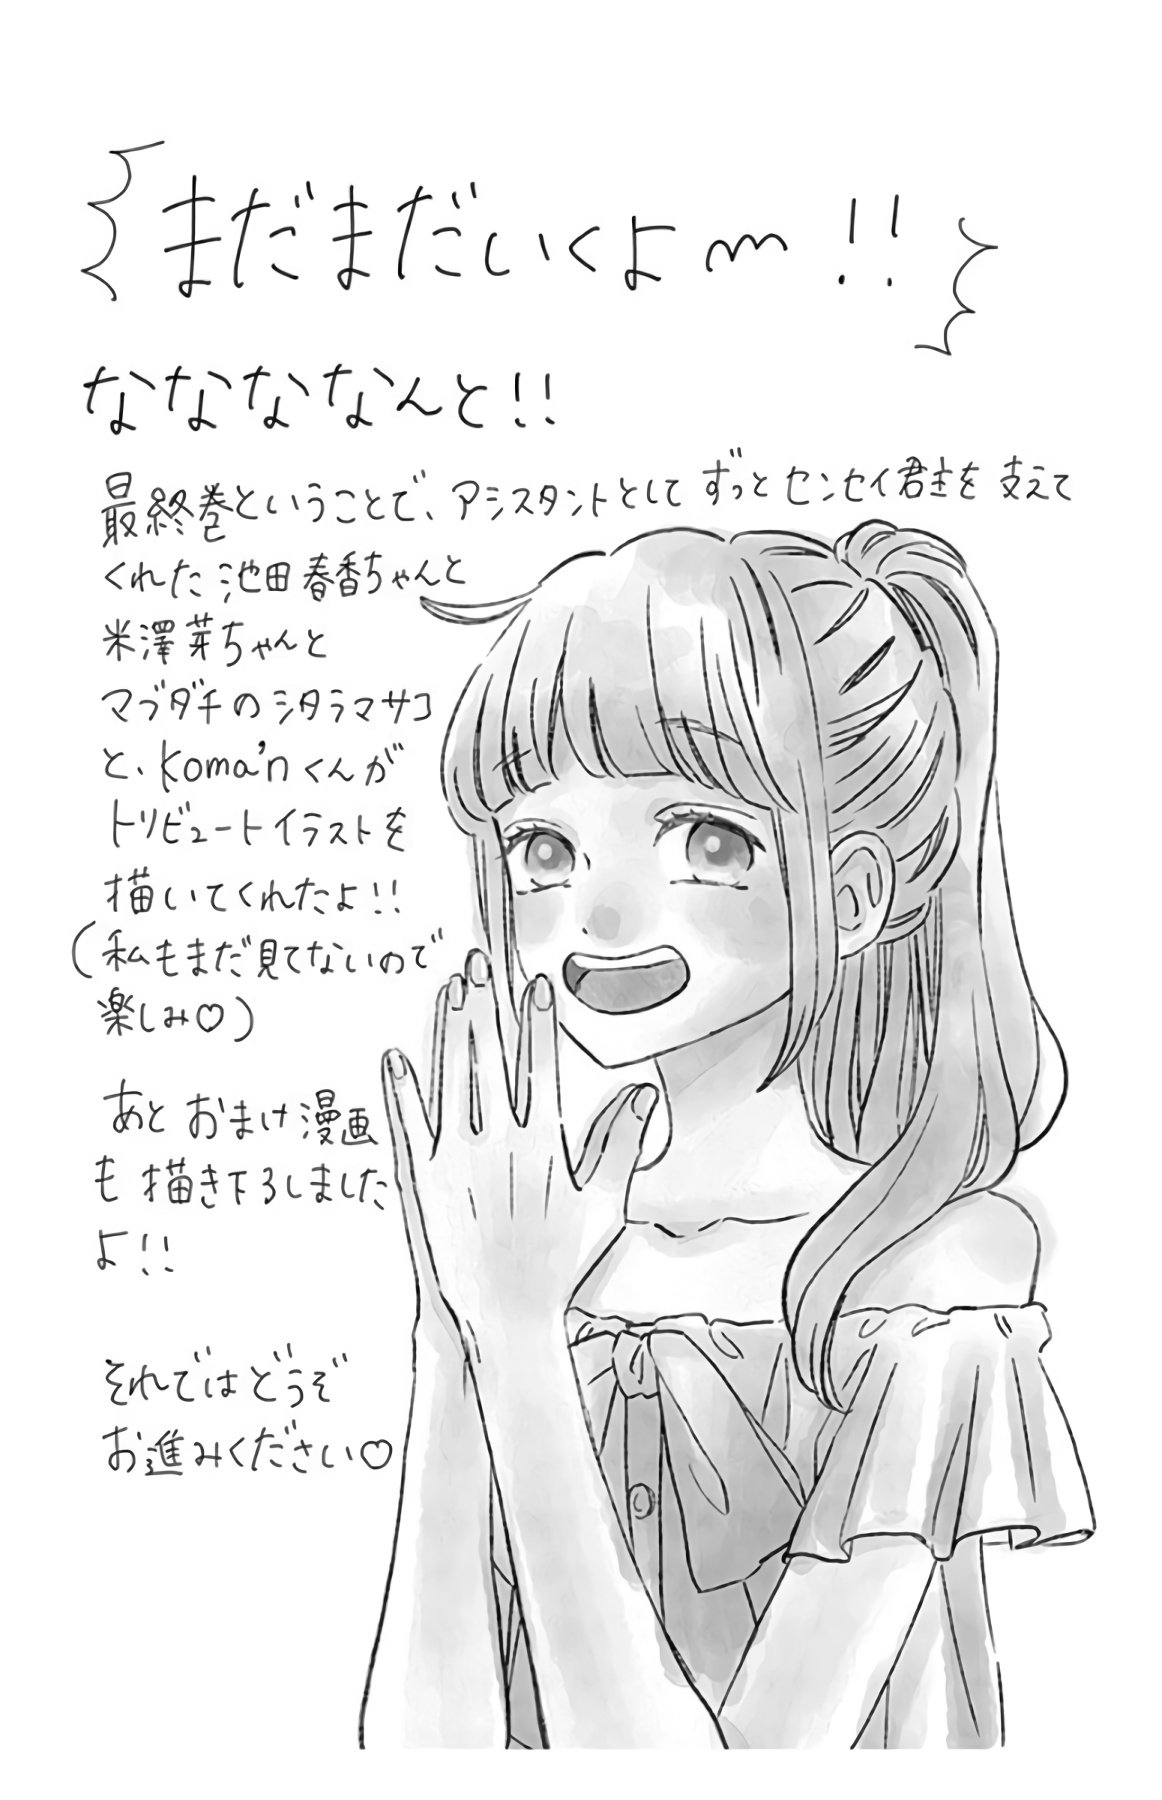 まだまだいくよ〰!!
なななななんと!!
最終巻ということで、アシスタントとしてずっとセンセイ君主を支えて
くれた池田春香ちゃんと
米澤芽ちゃんと
マブダチのシタラマサコ
と、koma'nくんが
トリビュートイラストを
描いてくれたよ!!
(私もまだ見てないので
楽しみ♡)
あとおまけ漫画
も描き下ろしました
よ!!
それではどうぞ
お進みください♡